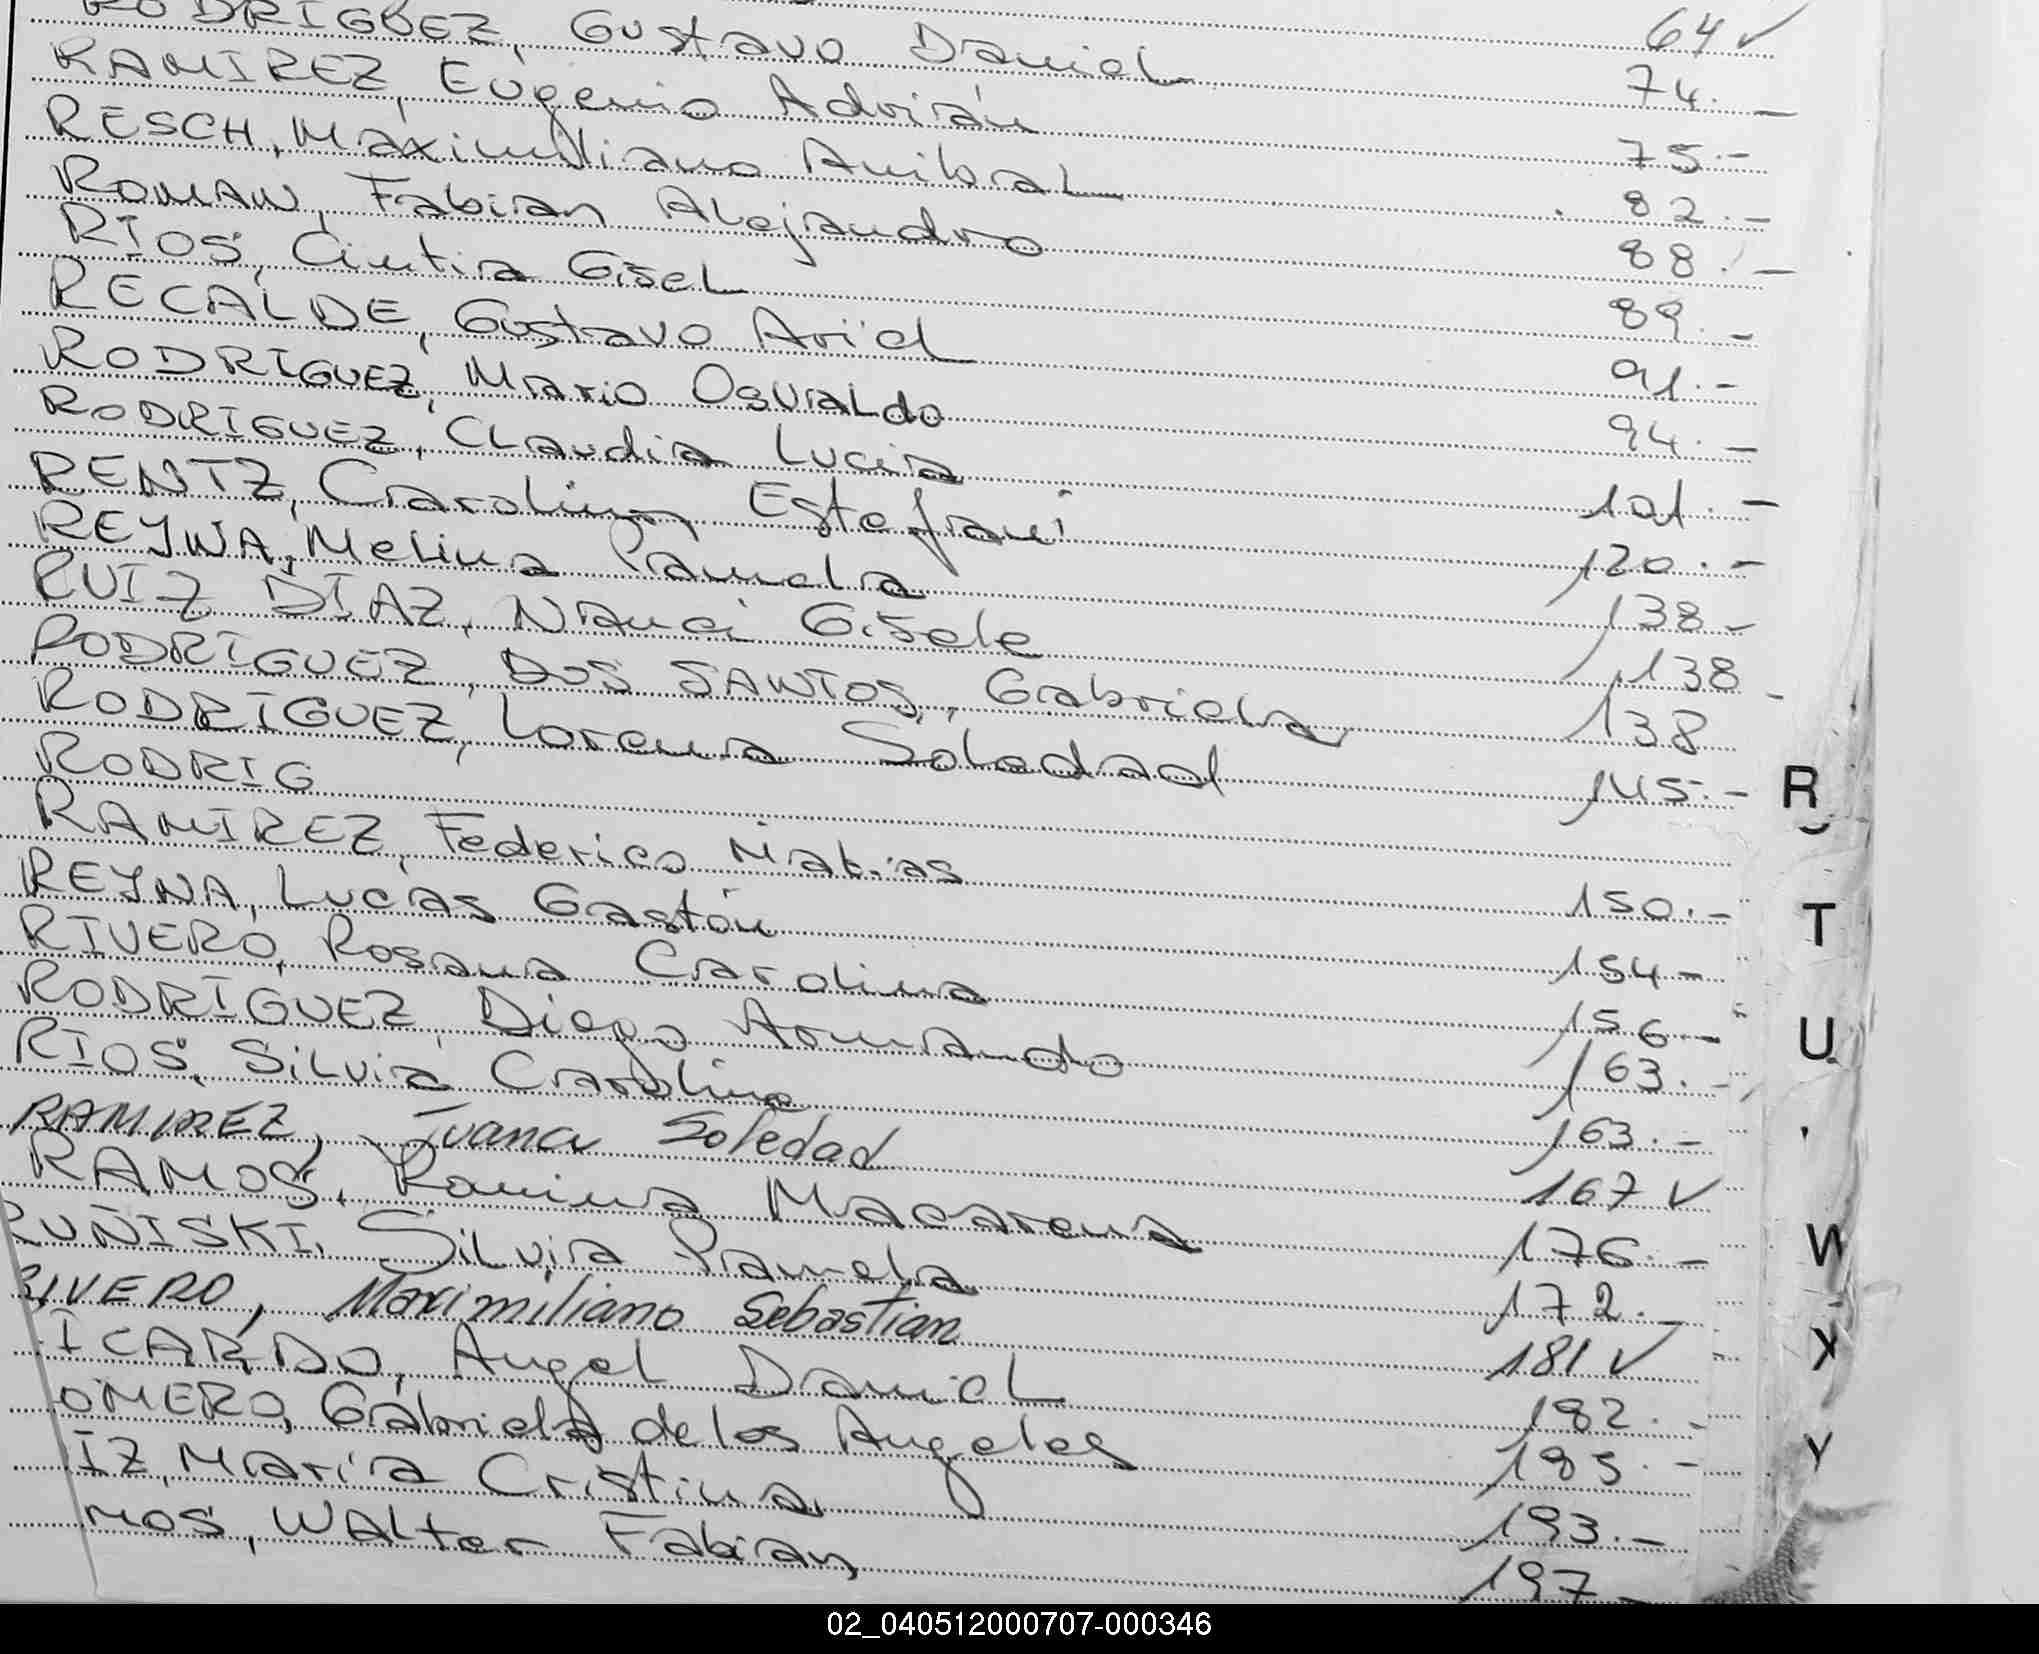 RODRIGUEZ, Gustavo Daniel 64 ✓
RAMIREZ, Eugenio Adrián 74.-
RESCH, Maximiliano Anibal 75.-
ROMAN, Fabian Alejandro 82.-
RIOS, Cintia Gisel 88.-
RECALDE, Gustavo Ariel 89.-
RODRIGUEZ, Mario Osvaldo 91.-
RODRIGUEZ, Claudia Lucia 94.-
RENTZ, Carolina Estefani 101.-
REYNA, Melina Pamela 120.-
RUIZ DIAZ, Nanci Gisele 138-
RODRIGUEZ, DOS SANTOS, Gabriela 138-
RODRIGUEZ, Lorena Soledad 138
RODRIG 145.-
RAMIREZ, Federico Matias
REYNA, Lucas Gastón 150.-
RIVERO, Rosana Carolina 154-
RODRIGUEZ, Diego Armando 156-
RIOS, Silvia Carolina 163.-
RAMIREZ, Ivana Soledad 163.-
RAMOS, Romina Macarena 167 ✓
RUÑISKI, Silvia Pamela 176.-
RIVERO, Maximiliano Sebastian 172.-
ICARDO, Angel Daniel 181 ✓
OMERO, Gabriela de los Angeles 182.-
IZ, Maria Cristina 185.-
MOS, Walter Fabian 193.-
197-
R
T
U
W
X
Y
02_040512000707-000346